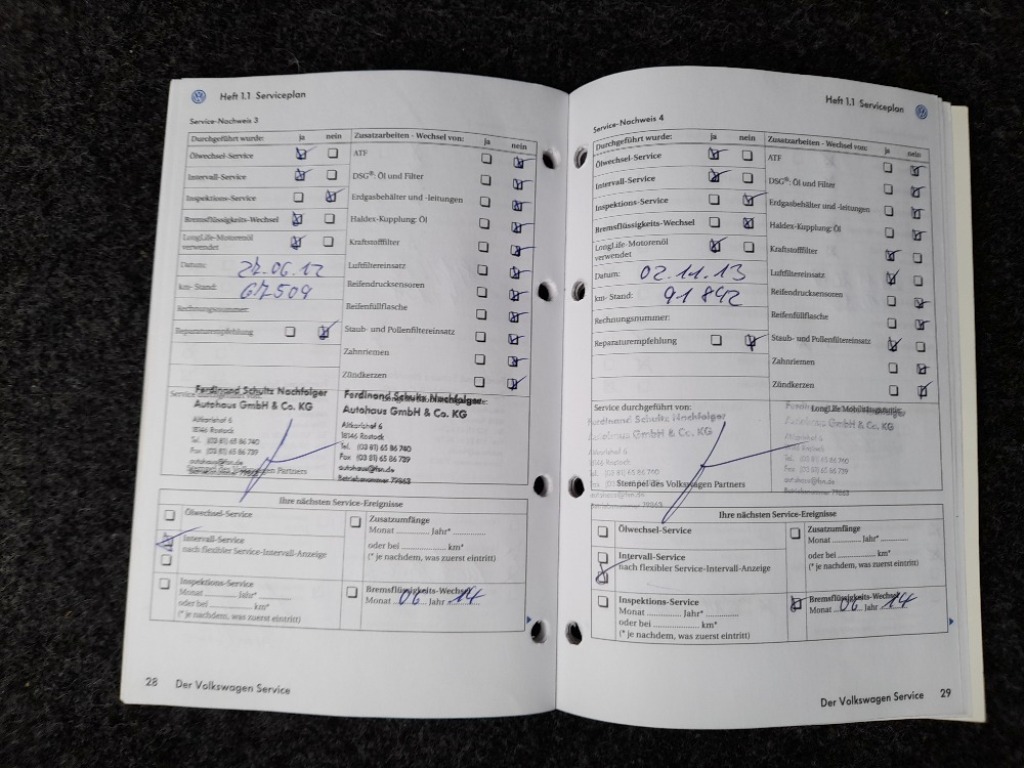 Heft 1.1 Serviceplan
Service-Nachweis 3
Durchgeführt wurde: ja nein
Ölwechsel-Service
Intervall-Service
Inspektions-Service
Bremsflüssigkeits-Wechsel
LongLife-Motorenöl
verwendet
Datum: 22.06.12
km- Stand: 67509
Rechnungsnummer:
Reparaturempfehlung
Zusatzarbeiten - Wechsel von: ja nein
ATF
DSG®: Öl und Filter
Erdgasbehälter und -leitungen
Haldex-Kupplung: Öl
Kraftstofffilter
Luftfiltereinsatz
Reifendrucksensoren
Reifenfüllflasche
Staub- und Pollenfiltereinsatz
Zahnriemen
Zündkerzen
Service
Ferdinand Schultz Nachfolger
Autohaus GmbH & Co. KG
Altkarlshof 6
18146 Rostock
Tel. (03 81) 65 86 740
Fax (03 81) 65 86 739
autohaus@fsn.de
Partners
Ferdinand Schultz Nachfolger
Autohaus GmbH & Co. KG
Altkarlshof 6
18146 Rostock
Tel. (03 81) 65 86 740
Fax (03 81) 65 86 739
autohaus@fsn.de
Betriebsnummer 79863
Ihre nächsten Service-Ereignisse
Ölwechsel-Service
Intervall-Service
nach flexibler Service-Intervall-Anzeige
Inspektions-Service
Monat ............ Jahr* ............
oder bei ................ km*
(* je nachdem, was zuerst eintritt)
Zusatzumfänge
Monat ............ Jahr* ............
oder bei ................ km*
(* je nachdem, was zuerst eintritt)
Bremsflüssigkeits-Wechsel
Monat 06 Jahr 14
28 Der Volkswagen Service
Heft 1.1 Serviceplan
Service-Nachweis 4
Durchgeführt wurde: ja nein
Ölwechsel-Service
Intervall-Service
Inspektions-Service
Bremsflüssigkeits-Wechsel
LongLife-Motorenöl
verwendet
Datum: 02.11.13
km- Stand: 91892
Rechnungsnummer:
Reparaturempfehlung
Zusatzarbeiten - Wechsel von: ja nein
ATF
DSG®: Öl und Filter
Erdgasbehälter und -leitungen
Haldex-Kupplung: Öl
Kraftstofffilter
Luftfiltereinsatz
Reifendrucksensoren
Reifenfüllflasche
Staub- und Pollenfiltereinsatz
Zahnriemen
Zündkerzen
Service durchgeführt von:
Ferdinand Schultz Nachfolger
Autohaus GmbH & Co. KG
Altkarlshof 6
18146 Rostock
Tel. (03 81) 65 86 740
Fax (03 81) 65 86 739
autohaus@fsn.de
Stempel des Volkswagen Partners
Ihre nächsten Service-Ereignisse
Ölwechsel-Service
Intervall-Service
nach flexibler Service-Intervall-Anzeige
Inspektions-Service
Monat ............ Jahr* ............
oder bei ................ km*
(* je nachdem, was zuerst eintritt)
Zusatzumfänge
Monat ............ Jahr* ............
oder bei ................ km*
(* je nachdem, was zuerst eintritt)
Bremsflüssigkeits-Wechsel
Monat 06 Jahr 14
Der Volkswagen Service 29